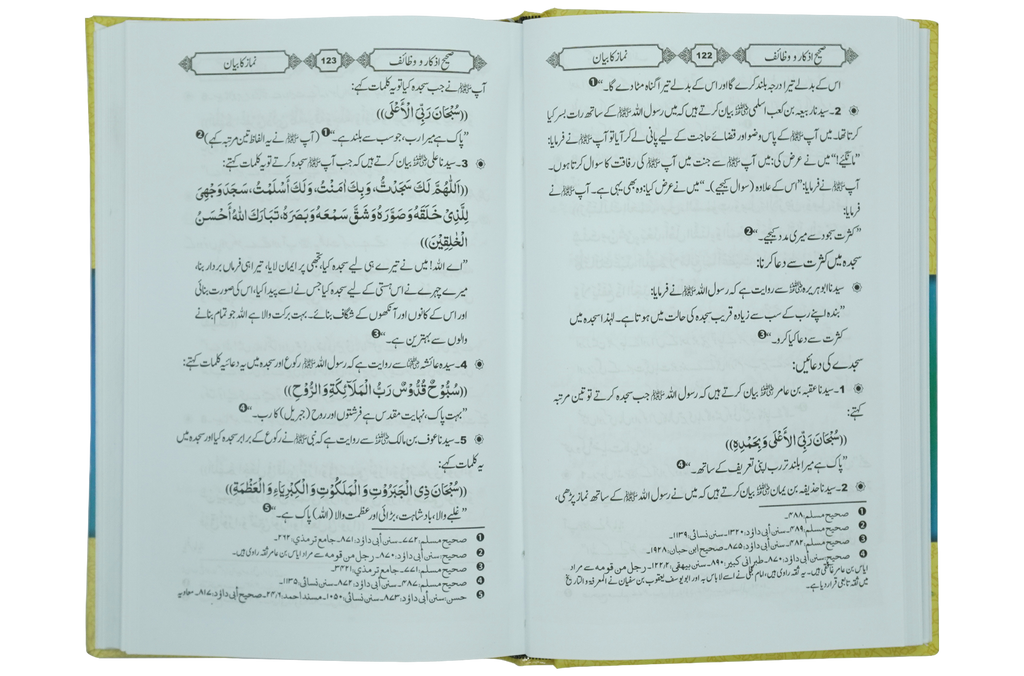 صحیح اذکار و وظائف 122 نماز کا بیان
اس کے بدلے تیرا درجہ بلند کرے گا اور اس کے بدلے تیرا گناہ مٹا دے گا۔“ ❶
2۔ سیدنا ربیعہ بن کعب اسلمی رضی اللہ عنہ بیان کرتے ہیں کہ میں رسول اللہ ﷺ کے ساتھ رات بسر کیا
کرتا تھا۔ میں آپ ﷺ کے پاس وضو اور قضائے حاجت کے لیے پانی لے کر آیا تو آپ ﷺ نے فرمایا:
”مانگئے!“ میں نے عرض کی: میں آپ ﷺ سے جنت میں آپ ﷺ کی رفاقت کا سوال کرتا ہوں۔
آپ ﷺ نے فرمایا: ”اس کے علاوہ (سوال کیجیے)۔“ میں نے عرض کیا: وہ بھی یہی ہے۔ آپ ﷺ نے
فرمایا:
”کثرت سجود سے میری مدد کیجیے۔“ ❷
سجدہ میں کثرت سے دعا کرنا:
سیدنا ابوہریرہ رضی اللہ عنہ سے روایت ہے کہ رسول اللہ ﷺ نے فرمایا:
”بندہ اپنے رب کے سب سے زیادہ قریب سجدہ کی حالت میں ہوتا ہے۔ لہٰذا سجدہ میں
کثرت سے دعا کیا کرو۔“ ❸
سجدے کی دعائیں:
1۔ سیدنا عقبہ بن عامر رضی اللہ عنہ بیان کرتے ہیں کہ رسول اللہ ﷺ جب سجدہ کرتے تو تین مرتبہ
کہتے:
((سُبْحَانَ رَبِّيَ الأَعْلَى وَبِحَمْدِهِ))
”پاک ہے میرا بلند تر رب اپنی تعریف کے ساتھ۔“ ❹
2۔ سیدنا حذیفہ بن یمان رضی اللہ عنہ بیان کرتے ہیں کہ میں نے رسول اللہ ﷺ کے ساتھ نماز پڑھی،
❶ صحیح مسلم: ۴۸۸۔
❷ صحیح مسلم: ۴۸۹۔ سنن أبی داؤد: ۱۳۲۰۔ سنن نسائی: ۱۱۳۹۔
❸ صحیح مسلم: ۴۸۲۔ سنن أبی داؤد: ۸۷۵۔ صحیح ابن حبان: ۱۹۲۸۔
❹ صحیح، سنن أبی داؤد: ۸۷۰۔ طبرانی کبیر: ۸۹۰۔ سنن بیهقی: ۱۲۲/۲۔ رجل من قومه سے مراد
ایاس بن عامر غافقی ہیں۔ یہ ثقہ راوی ہیں، امام عجلی نے اسے لا باس بہ اور ابو یوسف یعقوب بن سفیان نے المعرفة والتاریخ
میں ثقہ تابعی قرار دیا ہے۔
صحیح اذکار و وظائف 123 نماز کا بیان
آپ ﷺ نے جب سجدہ کیا تو یہ کلمات کہے:
((سُبْحَانَ رَبِّيَ الْأَعْلَى))
”پاک ہے میرا رب، جو سب سے بلند ہے۔“ ❶ (آپ ﷺ نے یہ الفاظ تین مرتبہ کہے) ❷
3۔ سیدنا علی رضی اللہ عنہ بیان کرتے ہیں کہ جب آپ ﷺ سجدہ کرتے تو یہ کلمات کہتے:
((اَللّٰهُمَّ لَكَ سَجَدْتُ، وَبِكَ اٰمَنْتُ، وَلَكَ أَسْلَمْتُ، سَجَدَ وَجْهِيَ
لِلَّذِيْ خَلَقَهُ وَصَوَّرَهُ وَشَقَّ سَمْعَهُ وَبَصَرَهُ، تَبَارَكَ اللهُ أَحْسَنُ
الْخَالِقِيْنَ))
”اے اللہ! میں نے تیرے ہی لیے سجدہ کیا، تجھی پر ایمان لایا، تیرا ہی فرماں بردار بنا،
میرے چہرے نے اس ہستی کے لیے سجدہ کیا جس نے اسے پیدا کیا، اس کی صورت بنائی
اور اس کے کانوں اور آنکھوں کے شگاف بنائے۔ بہت برکت والا ہے اللہ جو تمام بنانے
والوں سے بہترین ہے۔“ ❸
4۔ سیدہ عائشہ رضی اللہ عنہا سے روایت ہے کہ رسول اللہ ﷺ رکوع اور سجدہ میں یہ دعائیہ کلمات کہتے:
((سُبُّوْحٌ قُدُّوْسٌ رَبُّ الْمَلَآئِكَةِ وَالرُّوْحِ))
”بہت پاک، نہایت مقدس ہے فرشتوں اور روح (جبریل) کا رب۔“ ❹
5۔ سیدنا عوف بن مالک رضی اللہ عنہ سے روایت ہے کہ نبی ﷺ نے رکوع کے برابر سجدہ کیا اور سجدہ میں
یہ کلمات کہے:
((سُبْحَانَ ذِي الْجَبَرُوْتِ وَالْمَلَكُوْتِ وَالْكِبْرِيَاءِ وَالْعَظَمَةِ))
”غلبے والا، بادشاہت، بڑائی اور عظمت والا (اللہ) پاک ہے۔“ ❺
❶ صحیح مسلم: ۷۷۲۔ سنن أبی داؤد: ۸۷۱۔ جامع ترمذی: ۲۶۲۔
❷ صحیح، سنن أبی داؤد: ۸۷۰۔ رجل من قومه سے مراد ایاس بن عامر ثقہ راوی ہیں۔
❸ صحیح مسلم: ۷۷۱۔ جامع ترمذی: ۳۴۲۱۔
❹ صحیح مسلم: ۴۸۷۔ سنن أبی داؤد: ۸۷۲۔ سنن نسائی: ۱۱۳۵۔
❺ حسن، سنن أبی داؤد: ۸۷۳۔ سنن نسائی: ۱۰۵۰۔ مسند احمد: ۲۴/۶۔ صحیح أبی داؤد: ۸۱۷۔ معاویہ